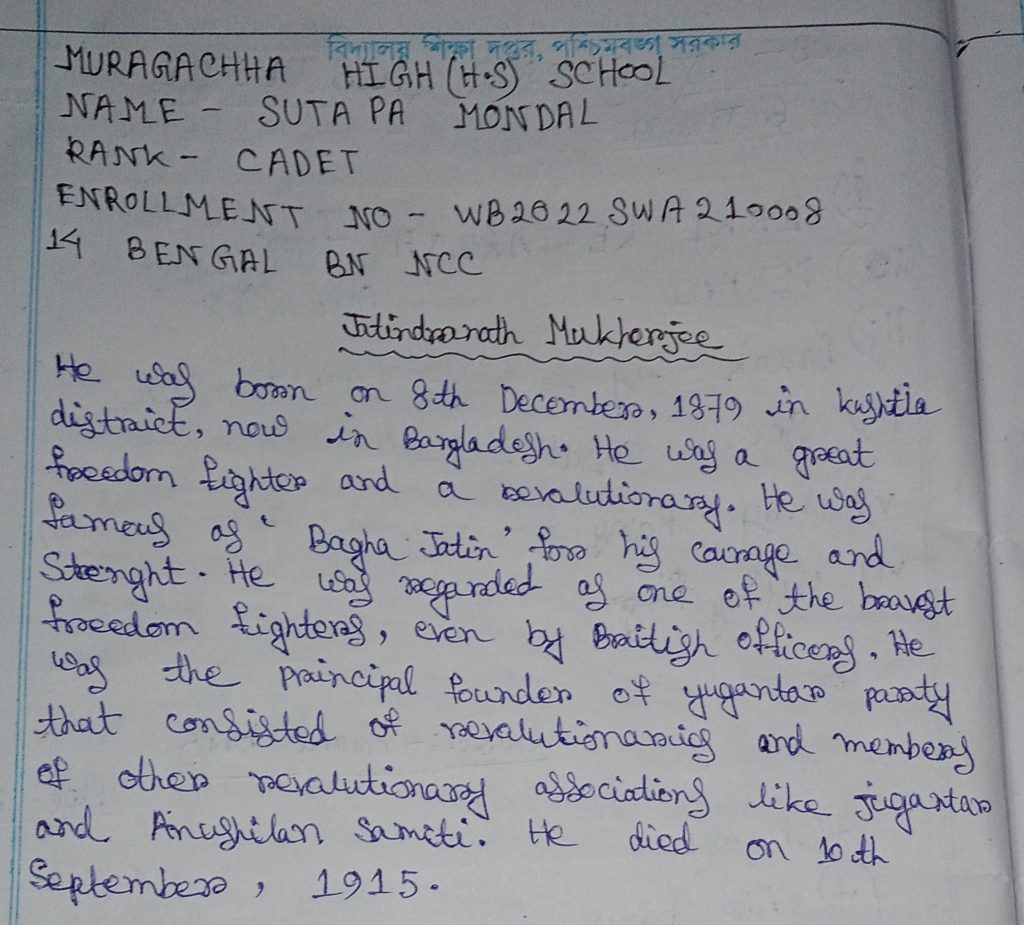 বিদ্যালয় শিক্ষা দপ্তর, পশ্চিমবঙ্গ সরকার
MURAGACHHA HIGH (H.S) SCHOOL
NAME - SUTAPA MONDAL
RANK - CADET
ENROLLMENT NO - WB2022SWA210008
14 BENGAL BN NCC
Jatindranath Mukherjee
He was born on 8th December, 1879 in kushtia
district, now in Bangladesh. He was a great
freedom fighter and a revalutionary. He was
famous as 'Bagha Jatin' for his courage and
Strenght. He was regarded as one of the bravest
freedom fighters, even by British officers. He
was the principal founder of yugantar party
that consisted of revalutionaries and members
of other revalutionary associations like jugantar
and Anushilan Samiti. He died on 10th
September, 1915.